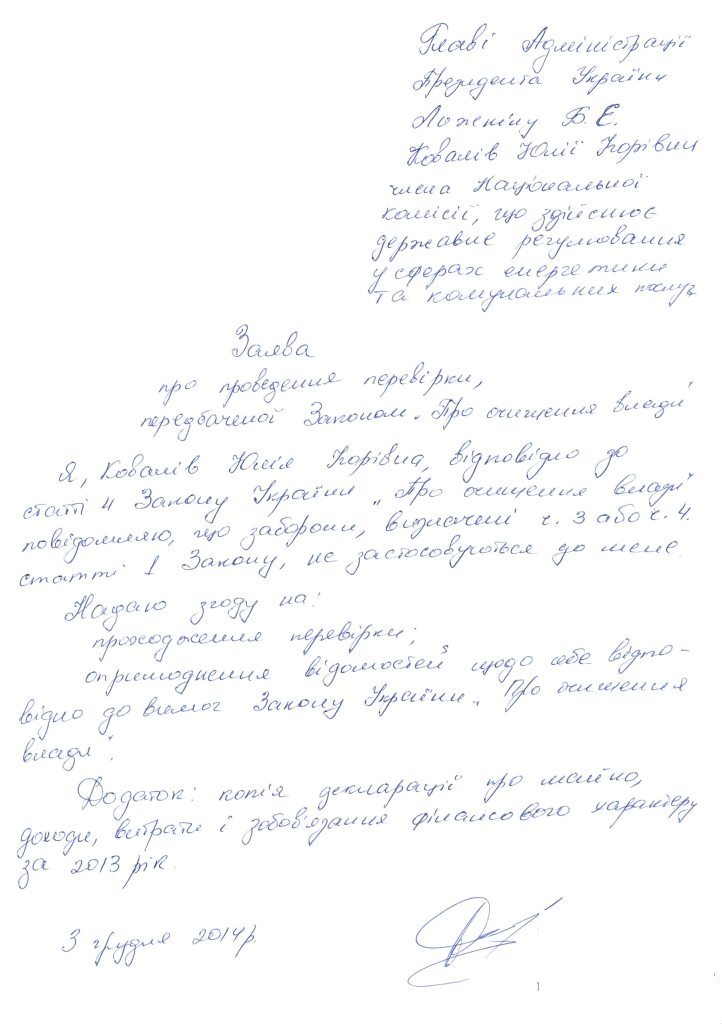 Главі Адміністрації
Президента України
Ложкіну Б.Є.
Ковалів Юлії Ігорівни
члена Національної
комісії, що здійснює
державне регулювання
у сферах енергетики
та комунальних послуг
Заява
про проведення перевірки,
передбаченої Законом „Про очищення влади"
Я, Ковалів Юлія Ігорівна, відповідно до
статті 4 Закону України „Про очищення влади"
повідомляю, що заборони, визначені ч. 3 або ч. 4.
статті 1 Закону, не застосовуються до мене.
Надаю згоду на:
проходження перевірки;
оприлюднення відомостей щодо себе відпо-
відно до вимог Закону України „Про очищення
влади".
Додаток: копія декларації про майно,
доходи, витрати і зобов'язання фінансового характеру
за 2013 рік.
3 грудня 2014р.
1